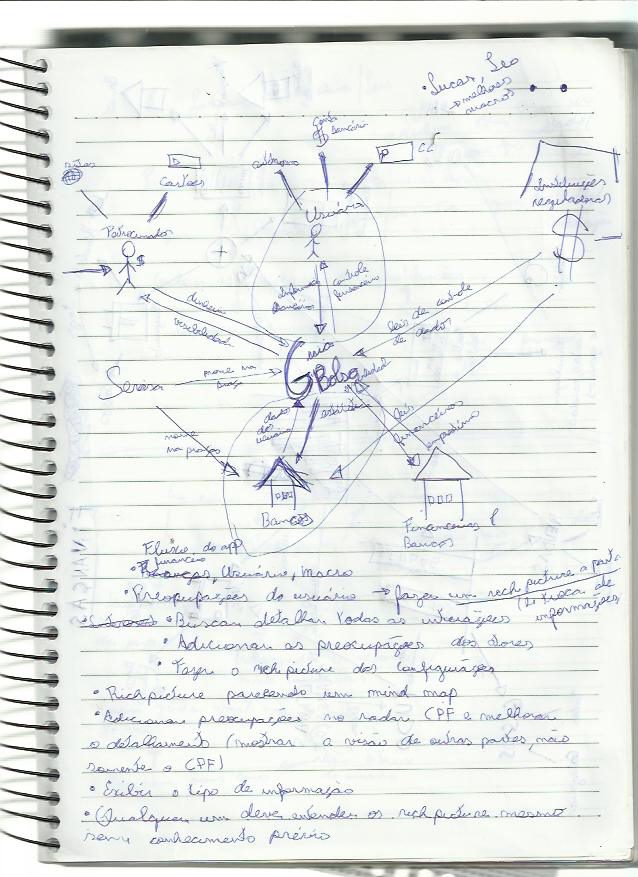 • Lucas, Leo
→ melhores
macros
Conta
Bancária
CC
Cartões
Patrocinador
$
Usuário
Instituições
reguladoras
$
dinheiro
visibilidade
controle
financeiro
Leis de controle
de dados
Serasa
nome na
G Bolso
dados
do
usuário
Leis
financeiras
empréstimo
nome
na praça
Bancos
Financeiras e
Bancos
Fluxo do app
financeiro
Usuário, Macro
• Preocupações do usuário → fazer um rich picture a parte
troca de
informações
• Buscar detalhar todas as interações
• Adicionar as preocupações dos atores
• Fazer o rich picture das configurações
• Rich picture parecendo um mind map
• Adicionar preocupações no radar CPF e melhorar
o detalhamento (mostrar a visão de outras partes, não
somente o CPF)
• Exibir o tipo de informação
• Qualquer um deve entender os rich picture mesmo
sem conhecimento prévio